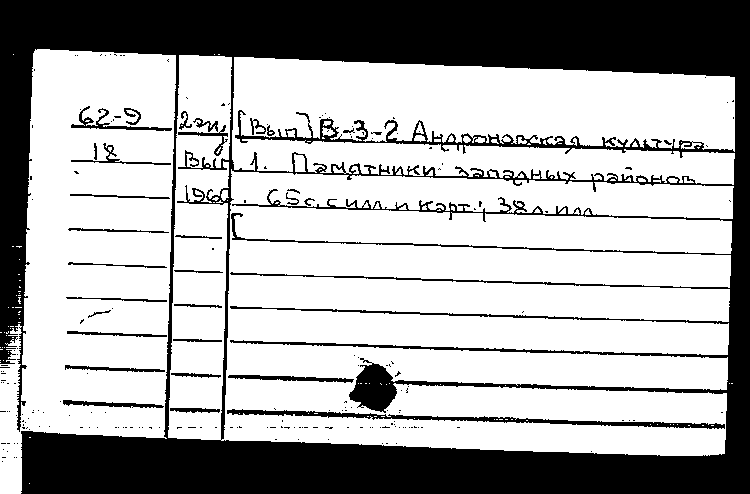 62-9 2 эк. [Вып] В-3-2 Андроновская культура
18 Вып. 1. Памятники западных районов
1966. 65 с. с илл. и карт.; 38 л. илл.
[